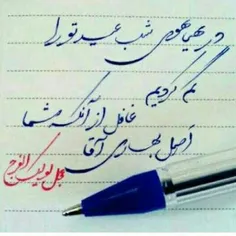 در هیاهوی شب عید تو را
گم کردیم
غافل از آنکه شما
اصل بهاری آقا
عجل لولیک الفرج